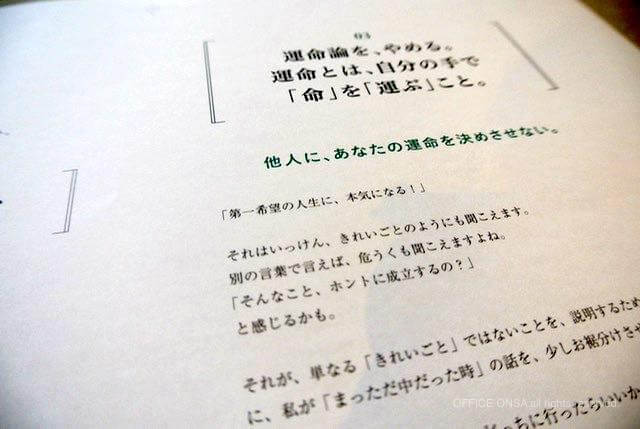 03
運命論を、やめる。
運命とは、自分の手で
「命」を「運ぶ」こと。
他人に、あなたの運命を決めさせない。
「第一希望の人生に、本気になる！」
それはいっけん、きれいごとのようにも聞こえます。
別の言葉で言えば、危うくも聞こえますよね。
「そんなこと、ホントに成立するの？」
と感じるかも。
それが、単なる「きれいごと」ではないことを、説明するため
に、私が「まっただ中だった時」の話を、少しお裾分けさせ
OFFICE ONSA all rights
っちに行ったらいいか